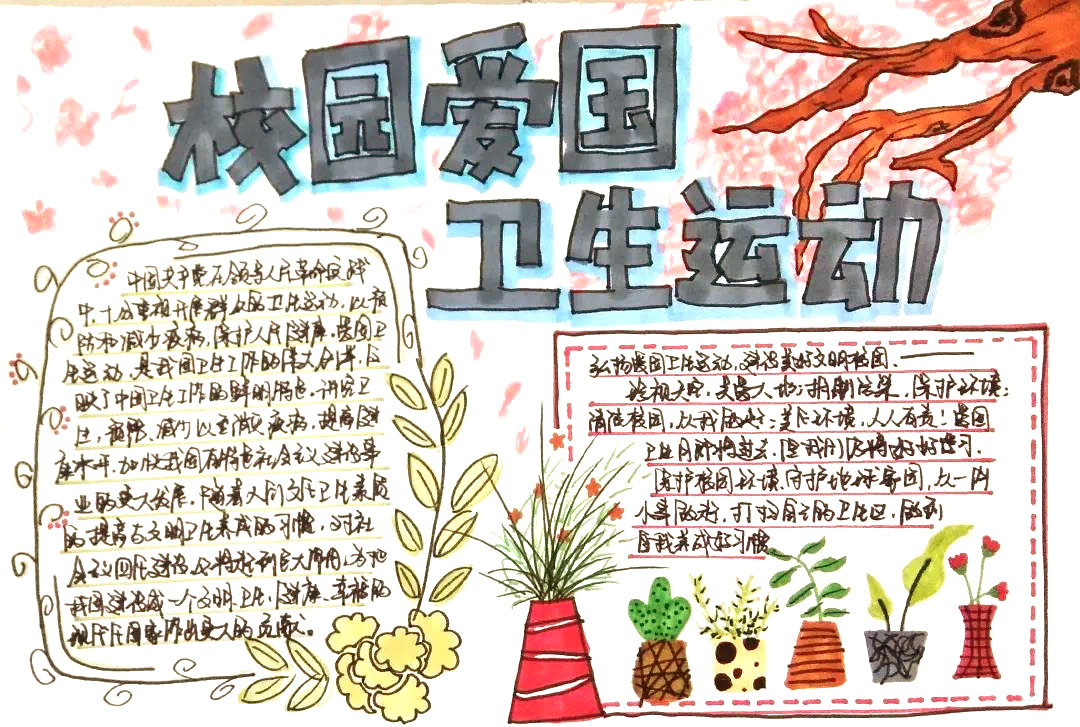 校园爱国
卫生运动
中国共产党在领导人民革命区战
中,十分重视开展群众的卫生运动,以预
防和减少疾病,保护人民健康,爱国卫
生运动,是我国卫生工作的伟大创举,反
映了中国卫生工作的鲜明特色,讲究卫
生,预防、减少以至消灭疾病,提高健
康水平,加快我国有特色社会主义建设事
业的更大发展,随着人们文化卫生素质
的提高与文明卫生养成的习惯,对社
会主义四化建设,必将起到巨大作用,为把
我国建设成一个文明、卫生、健康、幸福的
现代化国家作出更大的贡献。
弘扬爱国卫生运动,建设美好文明校园.
珍视天空,关爱大地;抑制污染,保护环境;
清洁校园,从我做起;美化环境,人人有责!爱国
卫生月即将过去,但我们仍将好好学习,
保护校园环境,守护地球家园,从一点
小事做好,打扫自己的卫生区,做到
自我养成好习惯